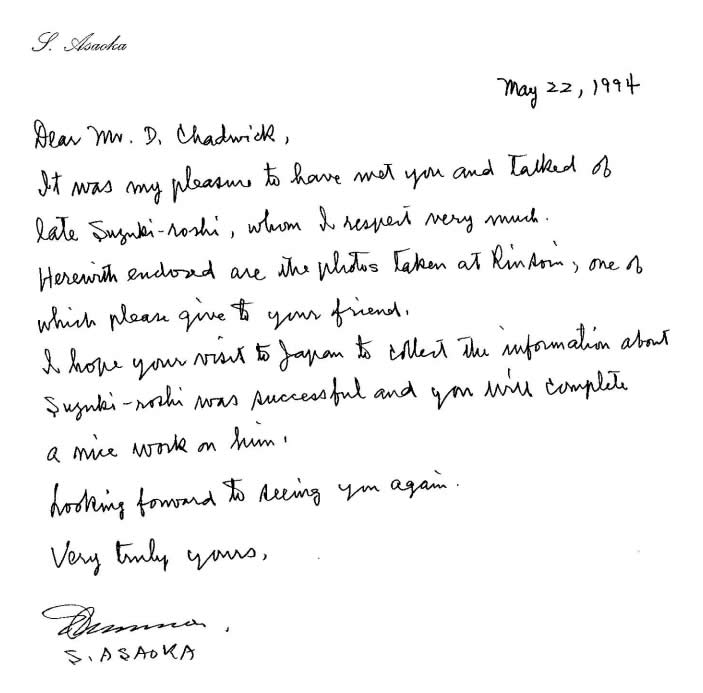 S. Asaoka
May 22, 1994
Dear Mr. D. Chadwick,
It was my pleasure to have met you and talked of
late Suzuki-roshi, whom I respect very much.
Herewith enclosed are the photos taken at Rinsoin, one of
which please give to your friend.
I hope your visit to Japan to collect the information about
Suzuki-roshi was successful and you will complete
a nice work on him.
Looking forward to seeing you again.
Very truly yours,
S. ASAOKA